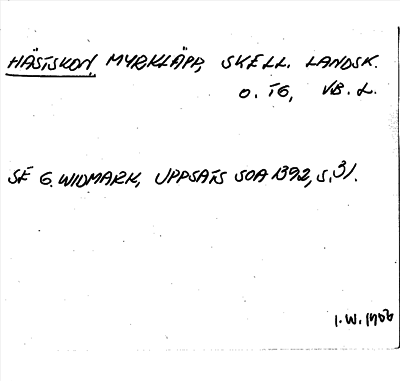 HÄSTSKON, MYRKLÄPP, SKELL. LANDSK.
O. TG, VB. L.
SE G. WIDMARK, UPPSATS SOA 1392, S. 31.
I. W. 1966